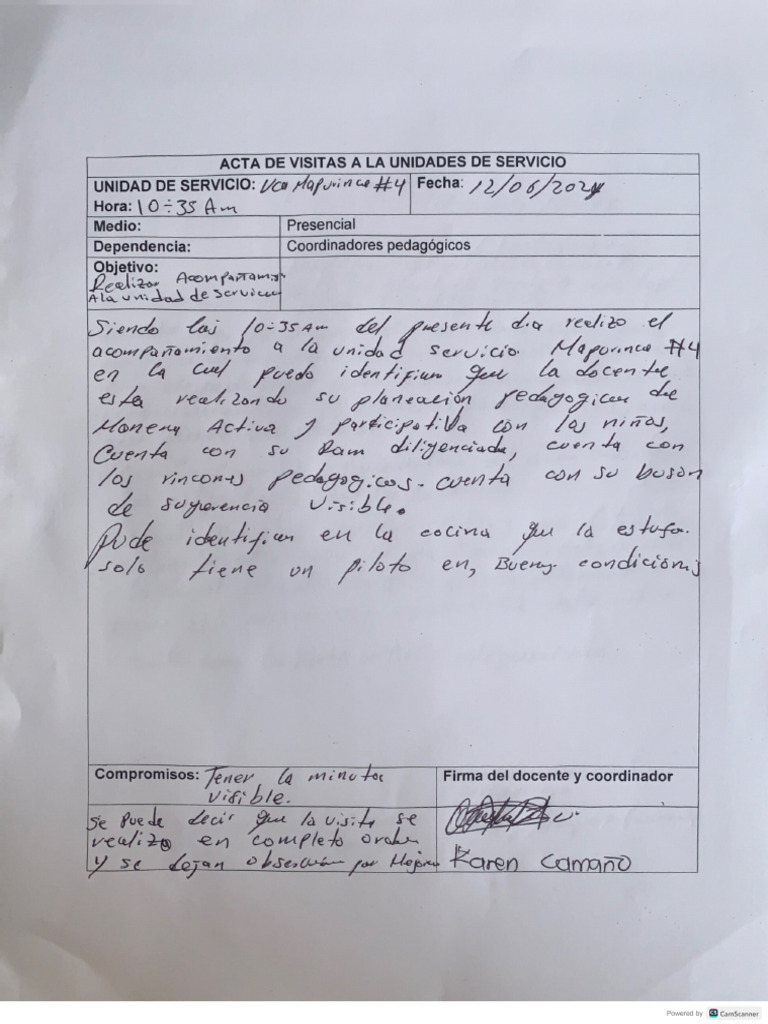 ACTA DE VISITAS A LA UNIDADES DE SERVICIO
UNIDAD DE SERVICIO: UCA Mapurince #4 Fecha: 12/06/2024
Hora: 10:35 Am
Medio: Presencial
Dependencia: Coordinadores pedagógicos
Objetivo:
Realizar Acompañami
A la unidad de servicio
Siendo las 10:35 Am del presente dia realizo el
acompañamiento a la unidad servicio Mapurince #4
en la cual puedo identificar que la docente
esta realizando su planeación pedagogica de
Manera Activa y participativa con los niños,
Cuenta con su Ram diligenciada, cuenta con
los rincones pedagogicos. cuenta con su buson
de sugerencia visible.
Pude identificar en la cocina que la estufa.
solo tiene un piloto en, Buenas condiciones
Compromisos: Tener la minuta
visible.
Firma del docente y coordinador
Se puede decir que la visita se
realizo en completo orden
y se dejan observacion por Mejorar
Karen Camaño
Powered by CamScanner